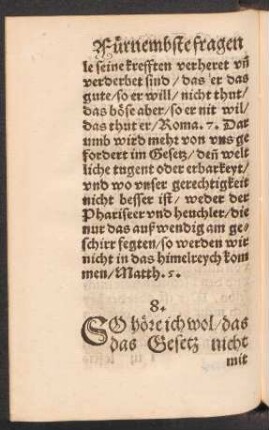 Fürnembste fragen
le seine krefften verheret vñ
verderbet sind / das er das
gute / so er will / nicht thut /
das böse aber / so er nit wil /
das thut er / Roma. 7. Dar
umb wird mehr von vns ge
fordert im Gesetz / deñ welt
liche tugent oder erbarkeyt /
vnd wo vnser gerechtigkeit
nicht besser ist / weder der
Phariseer vnd heuchler / die
nur das außwendig am ge⸗
schirr fegten / so werden wir
nicht in das himelreych kom
men / Matth. 5.
8.
SO höre ich wol / das
das Gesetz nicht
mit